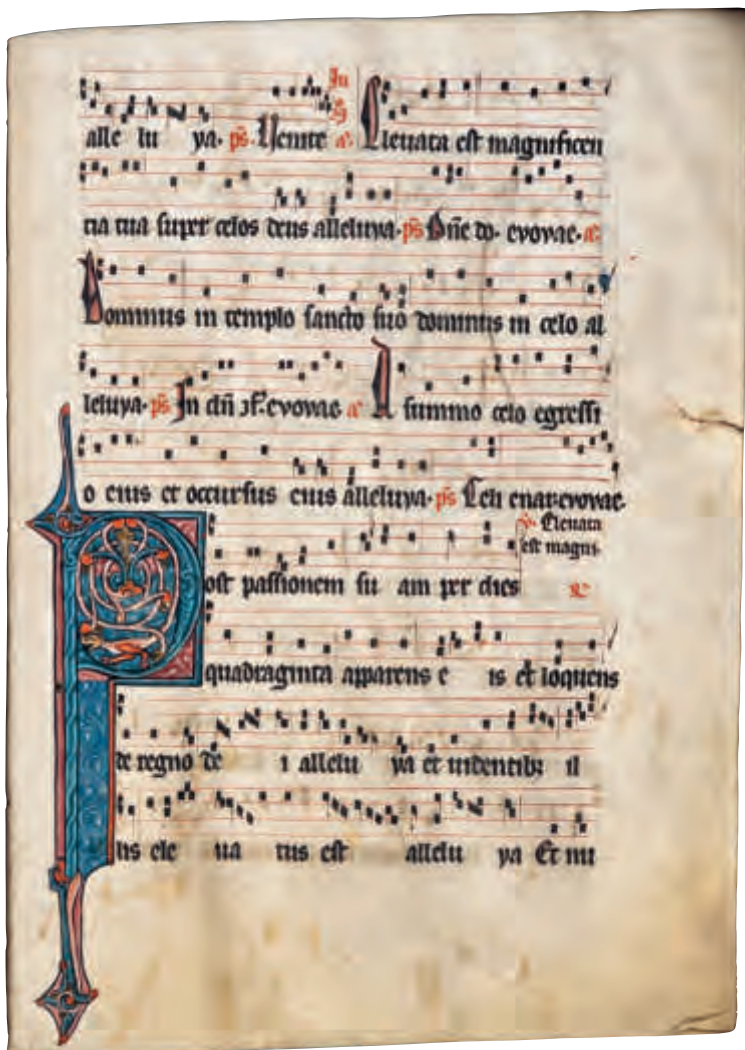 alle lu ya. ps. Venite a. Eleuata est magnificen
tia tua super celos deus alleluya. ps Dñe do. evovae. a.
Dominus in templo sancto suo dominus in celo al
leluya. ps In dñ ɔf. evovae a A summo celo egressi
o eius et occursus eius alleluya. ps Celi enar. evovae.
Post passionem su am per dies
Eleuata
est magni.
quadraginta apparens e is et loquens
de regno de i allelu ya et uidentibꝫ il
lis ele ua tus est allelu ya Et nu